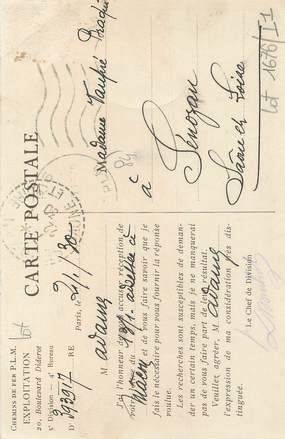 CHEMINS DE FER P.L.M.
EXPLOITATION
20, Boulevard Diderot
5e Division — 4e Bureau
Dr 393917 RE
CARTE POSTALE
Paris, 2/1/30
M adame
J'ai l'honneur de vous accuser réception de
votre du
Mâcon
et de vous faire savoir que je
fais le nécessaire pour vous fournir la réponse
voulue.
Les recherches sont susceptibles de deman-
der un certain temps, mais je ne manquerai
pas de vous faire part de leur résultat.
Veuillez agréer, M adame
l'expression de ma considération très dis-
tinguée.
Le Chef de Division
Madame
à
Sénozan
Saône et Loire
lot 1676/I1